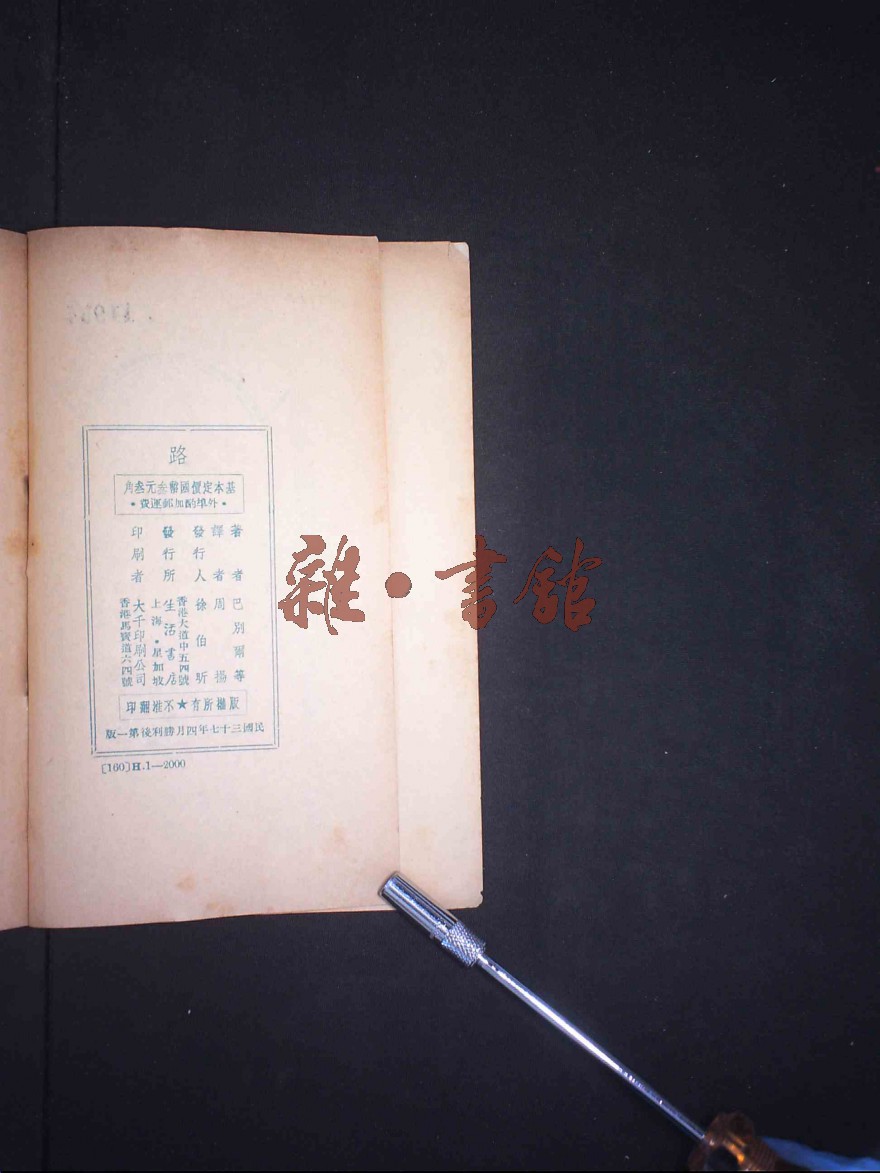 路
基本定價國幣叁元叁角
•外埠酌加郵運費•
著者 巴別爾等
譯者 周揚
發行人 徐伯昕
香港大道中五四號
發行所 生活書店
上海•星加坡
印刷者 大千印刷公司
香港馬寶道六四號
版權所有★不准翻印
民國三十七年四月勝利後第一版
[160]H.1—2000
雜•書館